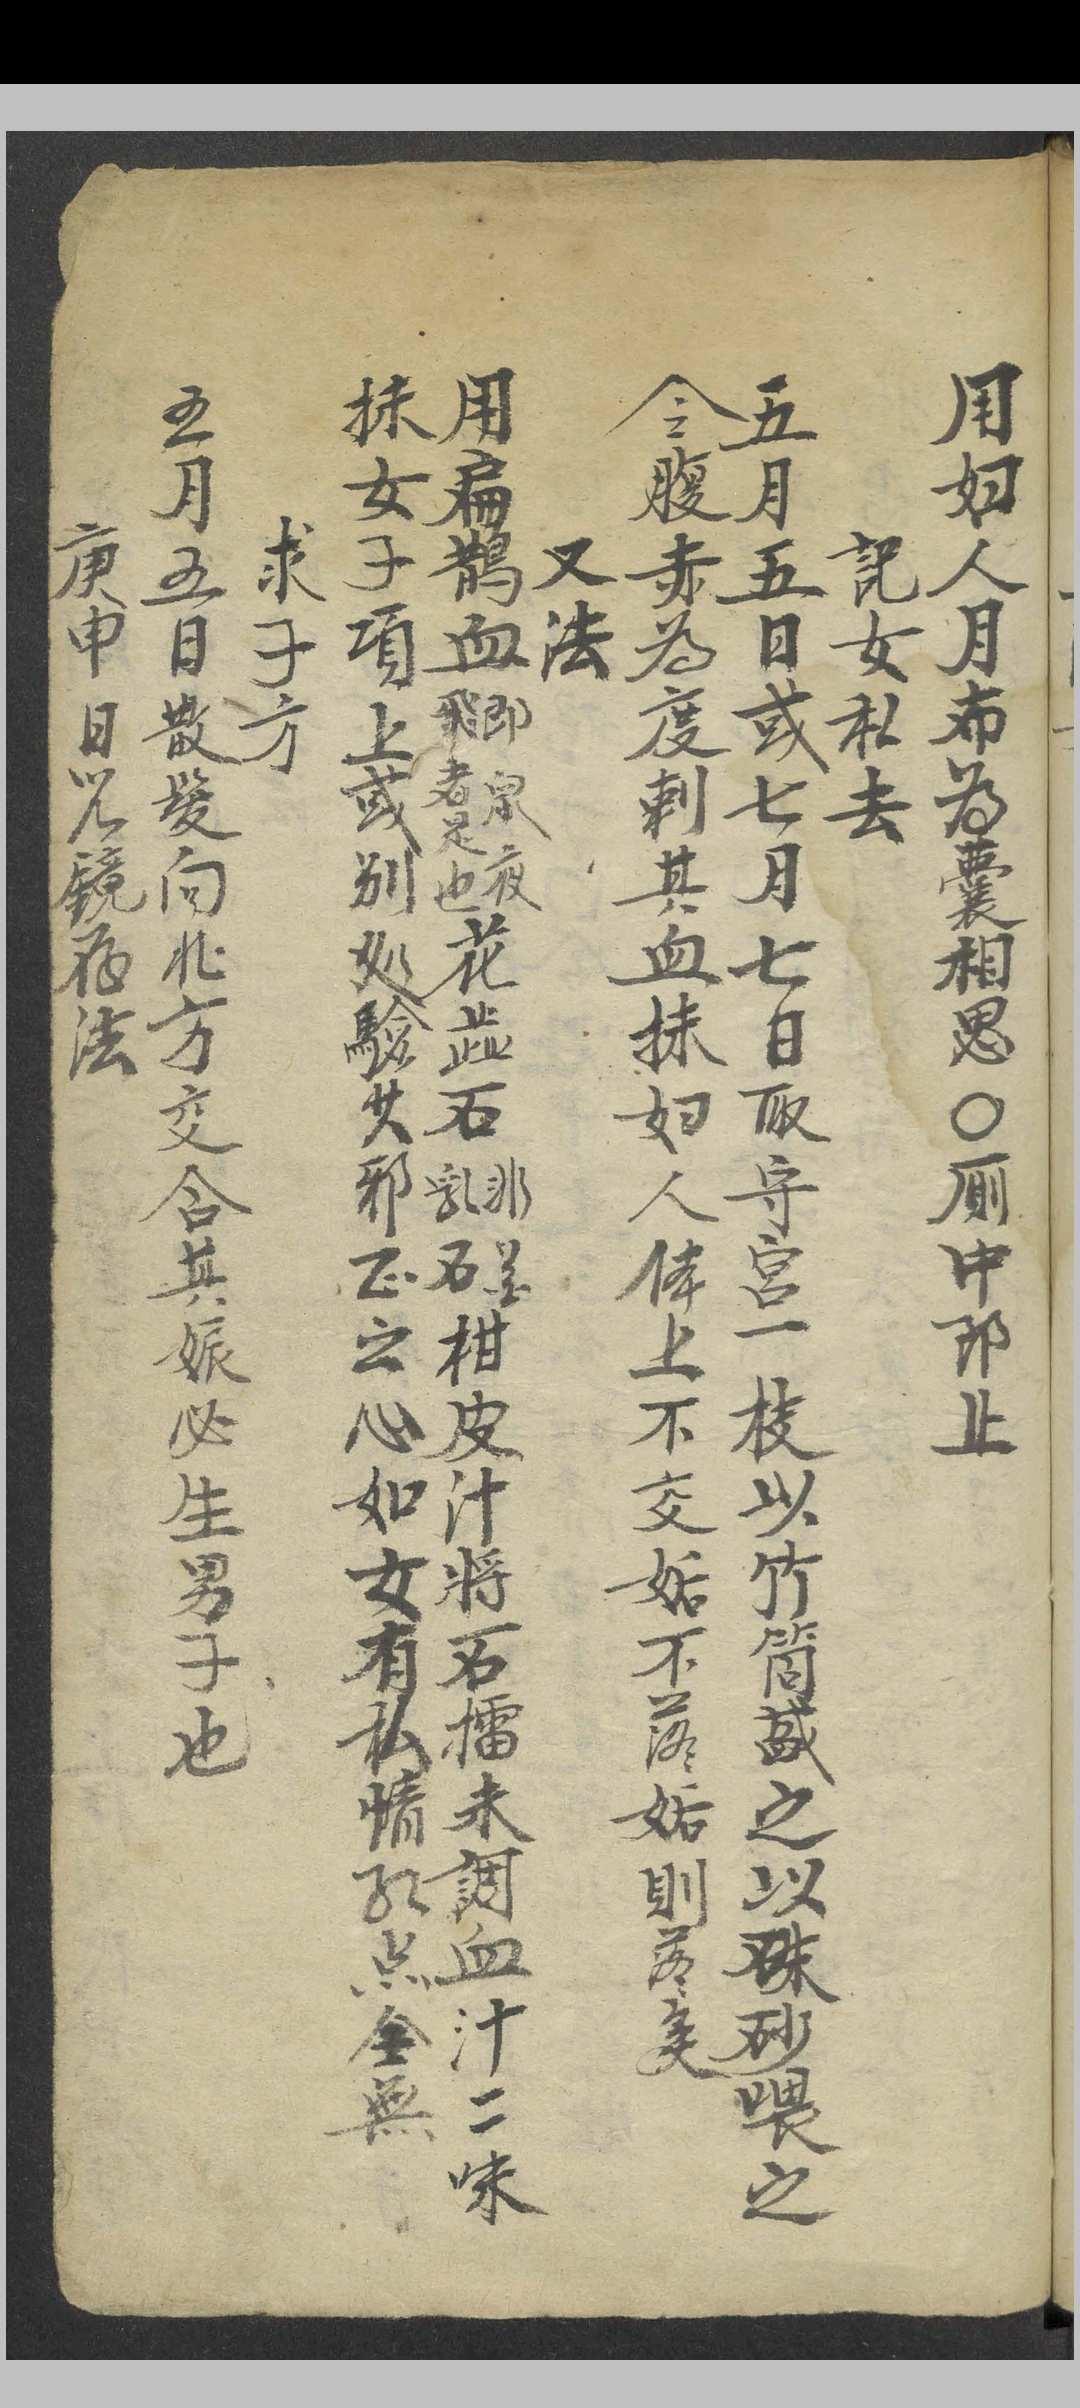 用妇人月布為囊相思○厠中即止
記女私去
五月五日或七月七日取守宮一枝以竹筒盛之以硃砂喂之
令腹赤為度刺其血抹妇人体上不交姤不落姤則落矣
又法
用扁鵲血即泉夜飛者是也花蕋石非差乳石柑皮汁將石擂末調血汁二味
抹女子項上或別处驗其邪正之心如女有私情紅点全無
求子方
五月五日散髮向北方交合其娠必生男子也
庚申日光鏡存法